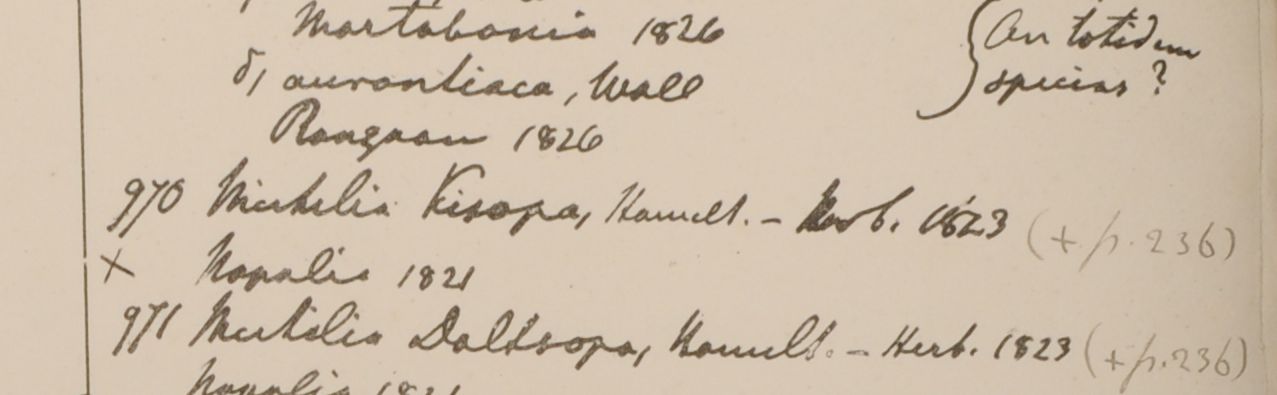 Martabania 1826
δ, aurantiaca, Wall
Rangoon 1826
{An totidem
species?
970 Michelia Kisopa, Hamilt. - Herb. 1823 (+ p. 236)
× Napalia 1821
971 Michelia Doltsopa, Hamilt. - Herb. 1823 (+ p. 236)
Napalia 1821